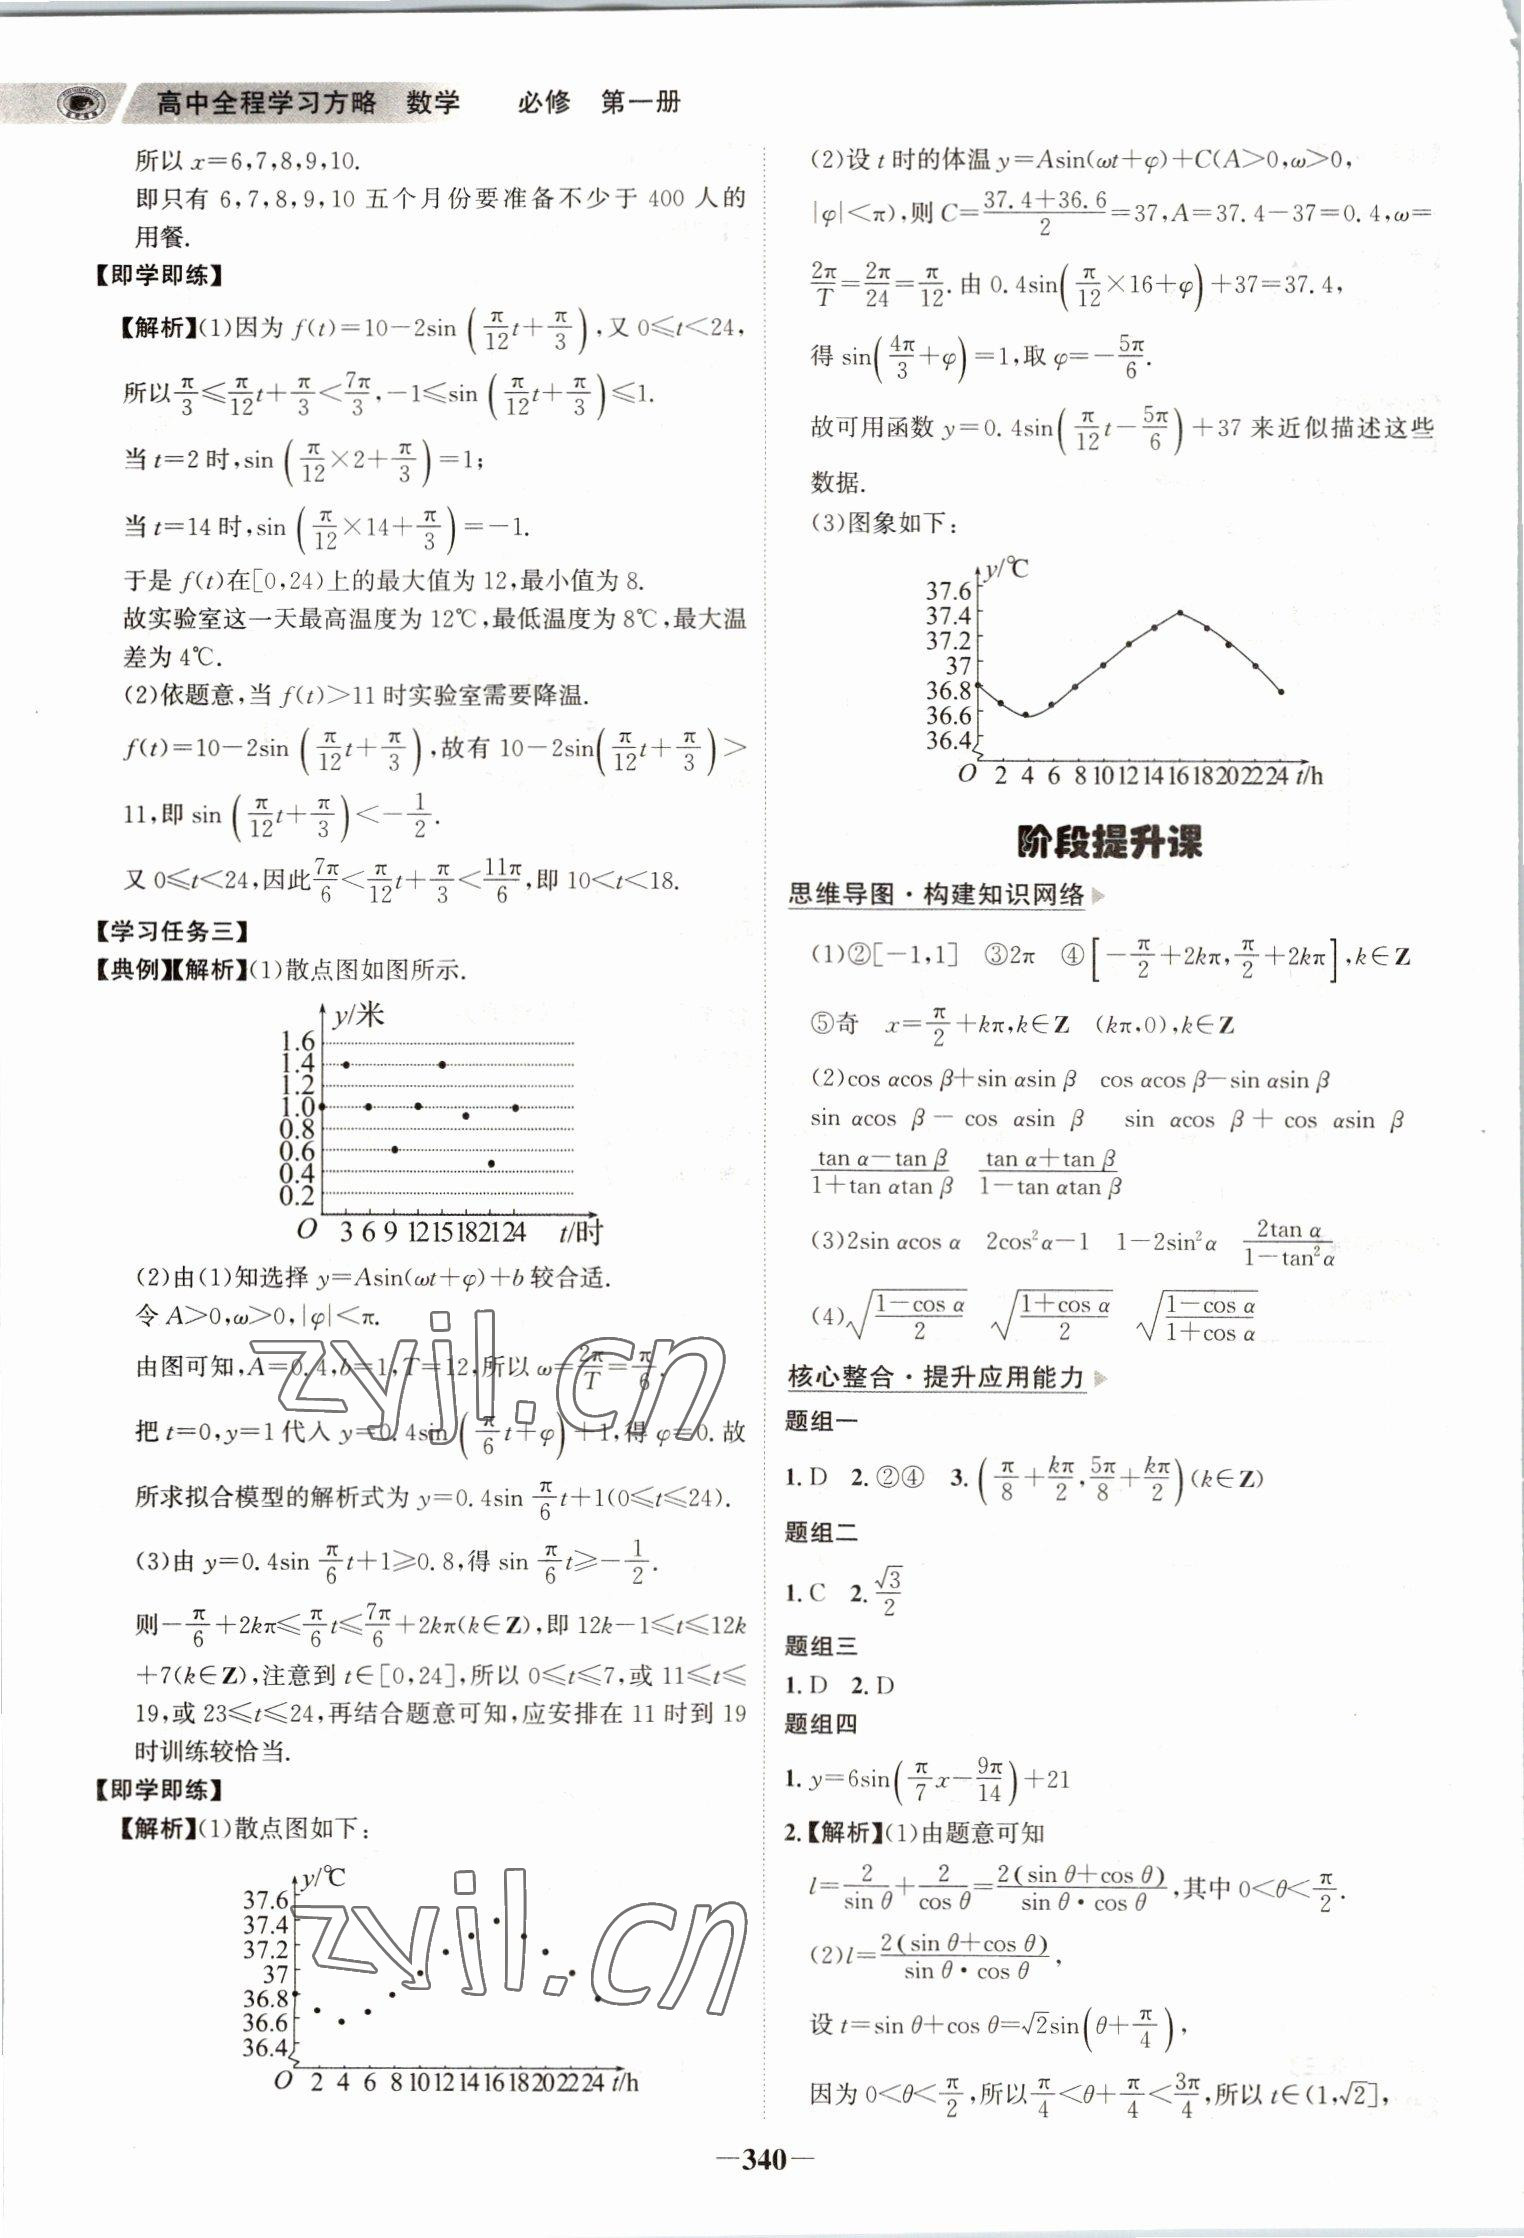 高中全程学习方略 数学 必修 第一册
所以 x=6,7,8,9,10.
即只有 6,7,8,9,10 五个月份要准备不少于 400 人的
用餐.
【即学即练】
【解析】(1)因为 f(t)=10-2sin(π/12 t+π/3),又 0≤t<24,
所以 π/3≤π/12 t+π/3<7π/3,-1≤sin(π/12 t+π/3)≤1.
当 t=2 时,sin(π/12×2+π/3)=1;
当 t=14 时,sin(π/12×14+π/3)=-1.
于是 f(t)在[0,24)上的最大值为 12,最小值为 8.
故实验室这一天最高温度为 12℃,最低温度为 8℃,最大温
差为 4℃.
(2)依题意,当 f(t)>11 时实验室需要降温.
f(t)=10-2sin(π/12 t+π/3),故有 10-2sin(π/12 t+π/3)>
11,即 sin(π/12 t+π/3)<-1/2.
又 0≤t<24,因此 7π/6<π/12 t+π/3<11π/6,即 10<t<18.
【学习任务三】
【典例】【解析】(1)散点图如图所示.
y/米
1.6
1.4
1.2
1.0
0.8
0.6
0.4
0.2
O 3 6 9 12 15 18 21 24 t/时
(2)由(1)知选择 y=Asin(ωt+φ)+b 较合适.
令 A>0,ω>0,|φ|<π.
由图可知,A=0.4,b=1,T=12,所以 ω=2π/T=π/6.
把 t=0,y=1 代入 y=0.4sin(π/6 t+φ)+1,得 φ=0.故
所求拟合模型的解析式为 y=0.4sin π/6 t+1(0≤t≤24).
(3)由 y=0.4sin π/6 t+1≥0.8,得 sin π/6 t≥-1/2.
则-π/6+2kπ≤π/6 t≤7π/6+2kπ(k∈Z),即 12k-1≤t≤12k
+7(k∈Z),注意到 t∈[0,24],所以 0≤t≤7,或 11≤t≤
19,或 23≤t≤24,再结合题意可知,应安排在 11 时到 19
时训练较恰当.
【即学即练】
【解析】(1)散点图如下:
y/℃
37.6
37.4
37.2
37
36.8
36.6
36.4
O 2 4 6 8 10 12 14 16 18 20 22 24 t/h
(2)设 t 时的体温 y=Asin(ωt+φ)+C(A>0,ω>0,
|φ|<π),则 C=(37.4+36.6)/2=37,A=37.4-37=0.4,ω=
2π/T=2π/24=π/12.由 0.4sin(π/12×16+φ)+37=37.4,
得 sin(4π/3+φ)=1,取 φ=-5π/6.
故可用函数 y=0.4sin(π/12 t-5π/6)+37 来近似描述这些
数据.
(3)图象如下:
y/℃
37.6
37.4
37.2
37
36.8
36.6
36.4
O 2 4 6 8 10 12 14 16 18 20 22 24 t/h
阶段提升课
思维导图·构建知识网络
(1)②[-1,1] ③2π ④[-π/2+2kπ,π/2+2kπ],k∈Z
⑤奇 x=π/2+kπ,k∈Z (kπ,0),k∈Z
(2)cos αcos β+sin αsin β cos αcos β-sin αsin β
sin αcos β-cos αsin β sin αcos β+cos αsin β
(tan α-tan β)/(1+tan αtan β) (tan α+tan β)/(1-tan αtan β)
(3)2sin αcos α 2cos²α-1 1-2sin²α 2tan α/(1-tan²α)
(4)√((1-cos α)/2) √((1+cos α)/2) √((1-cos α)/(1+cos α))
核心整合·提升应用能力
题组一
1.D 2.②④ 3.(π/8+kπ/2,5π/8+kπ/2)(k∈Z)
题组二
1.C 2.√3/2
题组三
1.D 2.D
题组四
1.y=6sin(π/7 x-9π/14)+21
2.【解析】(1)由题意可知
l=2/sin θ+2/cos θ=2(sin θ+cos θ)/(sin θ·cos θ),其中 0<θ<π/2.
(2)l=2(sin θ+cos θ)/(sin θ·cos θ),
设 t=sin θ+cos θ=√2sin(θ+π/4),
因为 0<θ<π/2,所以 π/4<θ+π/4<3π/4,所以 t∈(1,√2],
—340—
zyjl.cn
zyjl.cn